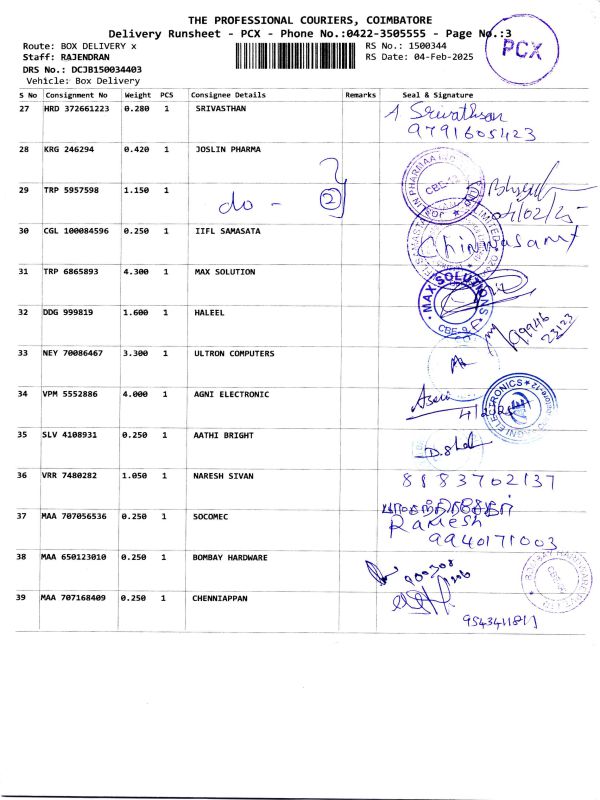 THE PROFESSIONAL COURIERS, COIMBATORE
Delivery Runsheet - PCX - Phone No.:0422-3505555 - Page No.:3
PCX
Route: BOX DELIVERY x
RS No.: 1500344
Staff: RAJENDRAN
RS Date: 04-Feb-2025
DRS No.: DCJB150034403
Vehicle: Box Delivery
S No Consignment No Weight PCS Consignee Details Remarks Seal & Signature
27 HRD 372661223 0.280 1 SRIVASTHAN
Srivathsan
9791605423
28 KRG 246294 0.420 1 JOSLIN PHARMA
29 TRP 5957598 1.150 1
do - 2
30 CGL 100084596 0.250 1 IIFL SAMASATA
31 TRP 6865893 4.300 1 MAX SOLUTION
MAX SOLUTIONS
32 DDG 999819 1.600 1 HALEEL
99946
23123
33 NEY 70086467 3.300 1 ULTRON COMPUTERS
34 VPM 5552886 4.000 1 AGNI ELECTRONIC
AGNI ELECTRONICS
35 SLV 4108931 0.250 1 AATHI BRIGHT
36 VRR 7480282 1.050 1 NARESH SIVAN
8883702137
37 MAA 707056536 0.250 1 SOCOMEC
Ramesh
9940171003
38 MAA 650123010 0.250 1 BOMBAY HARDWARE
39 MAA 707168409 0.250 1 CHENNIAPPAN